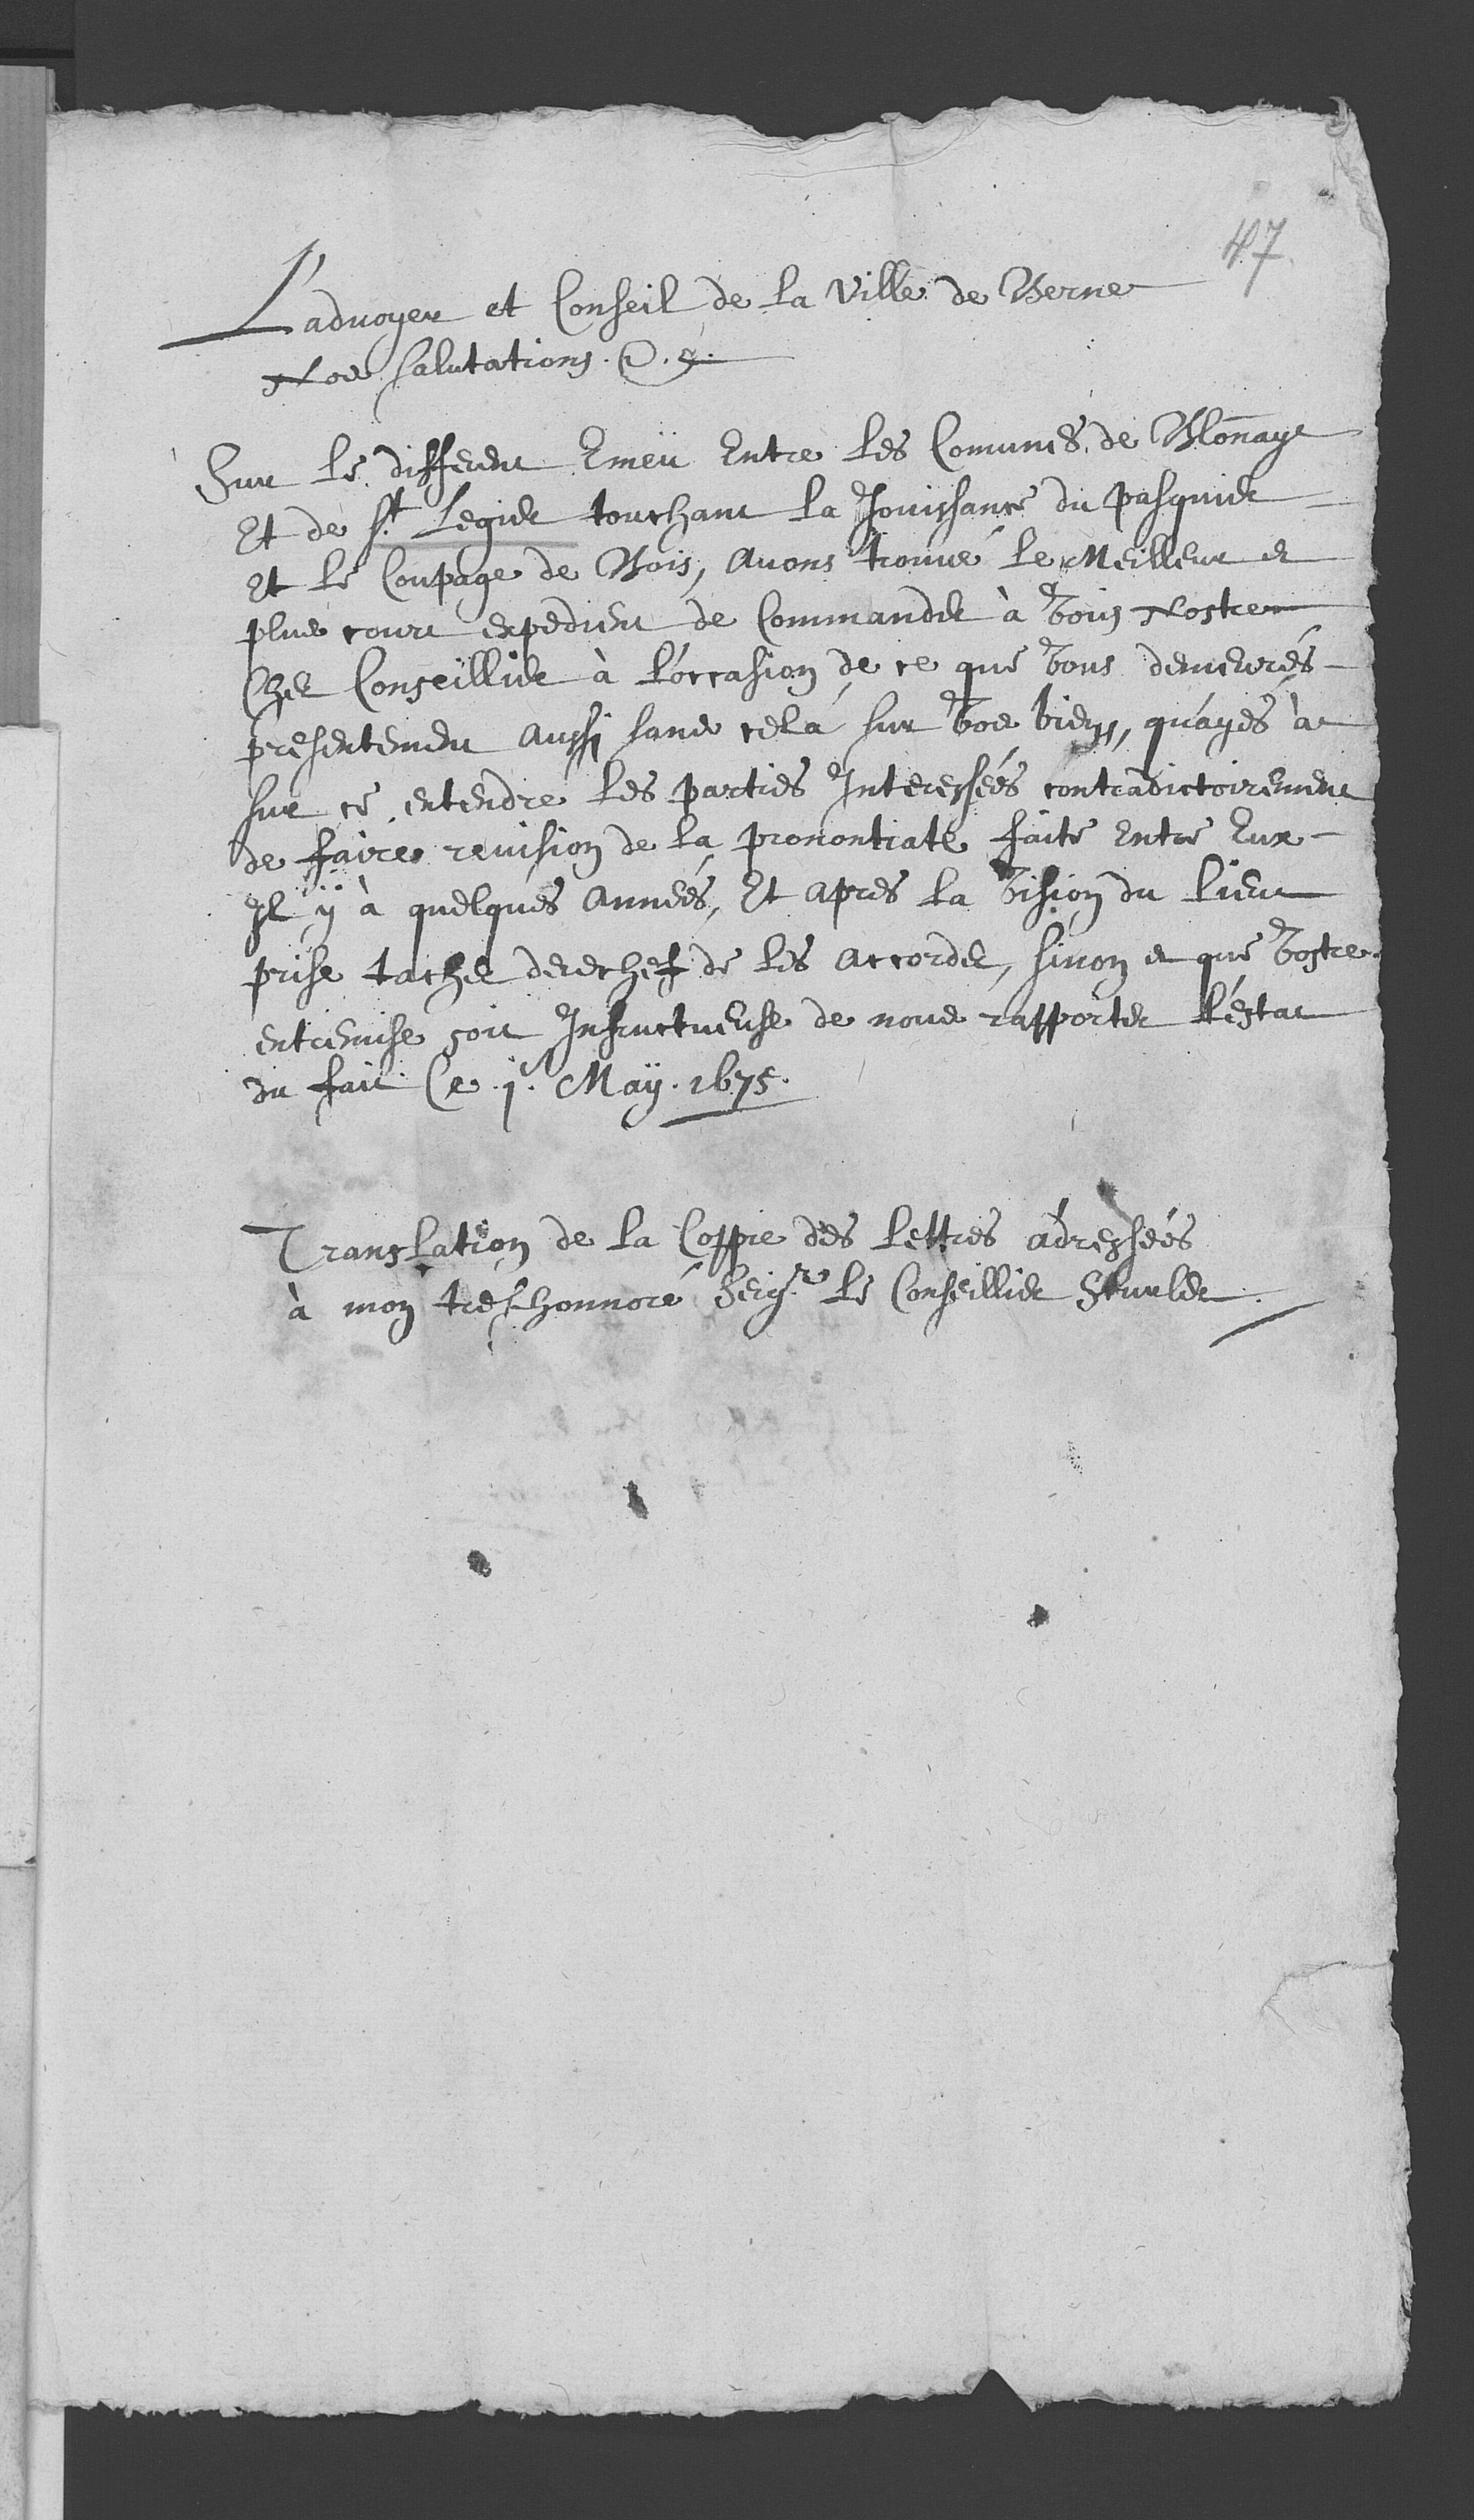 47
L'advoyer et Conseil de la Ville de Berne
Nos salutations.
Sur le different Emeü Entre les Comunes de Blonaye
Et de St. Legier touchant la Jouissance du pasquier
Et le Coupage de Bois, avons trouvé le Meilleur et
plus court expedient de Commander à Vous Nostre
Cher Conseillier à l'occasion de ce que Vous demeurés
presentement aussi sans cela sur Vos biens, qu'ayés à
sur ce entendre les parties Interessées contradictoirement
de faire revision de la prononciate faite Entre Eux
Il ÿ à quelques Années, Et apres la Vision du lieu
prise tacher derechef de les accorder, sinon et que Vostre
entremise soit Infructueuse de nous rapporter l'estat
du fait Ce j. Maÿ. 1675.
Translation de la Coppie des lettres adressées
à mon tres honnoré Seigr. le Conseillier Sturler